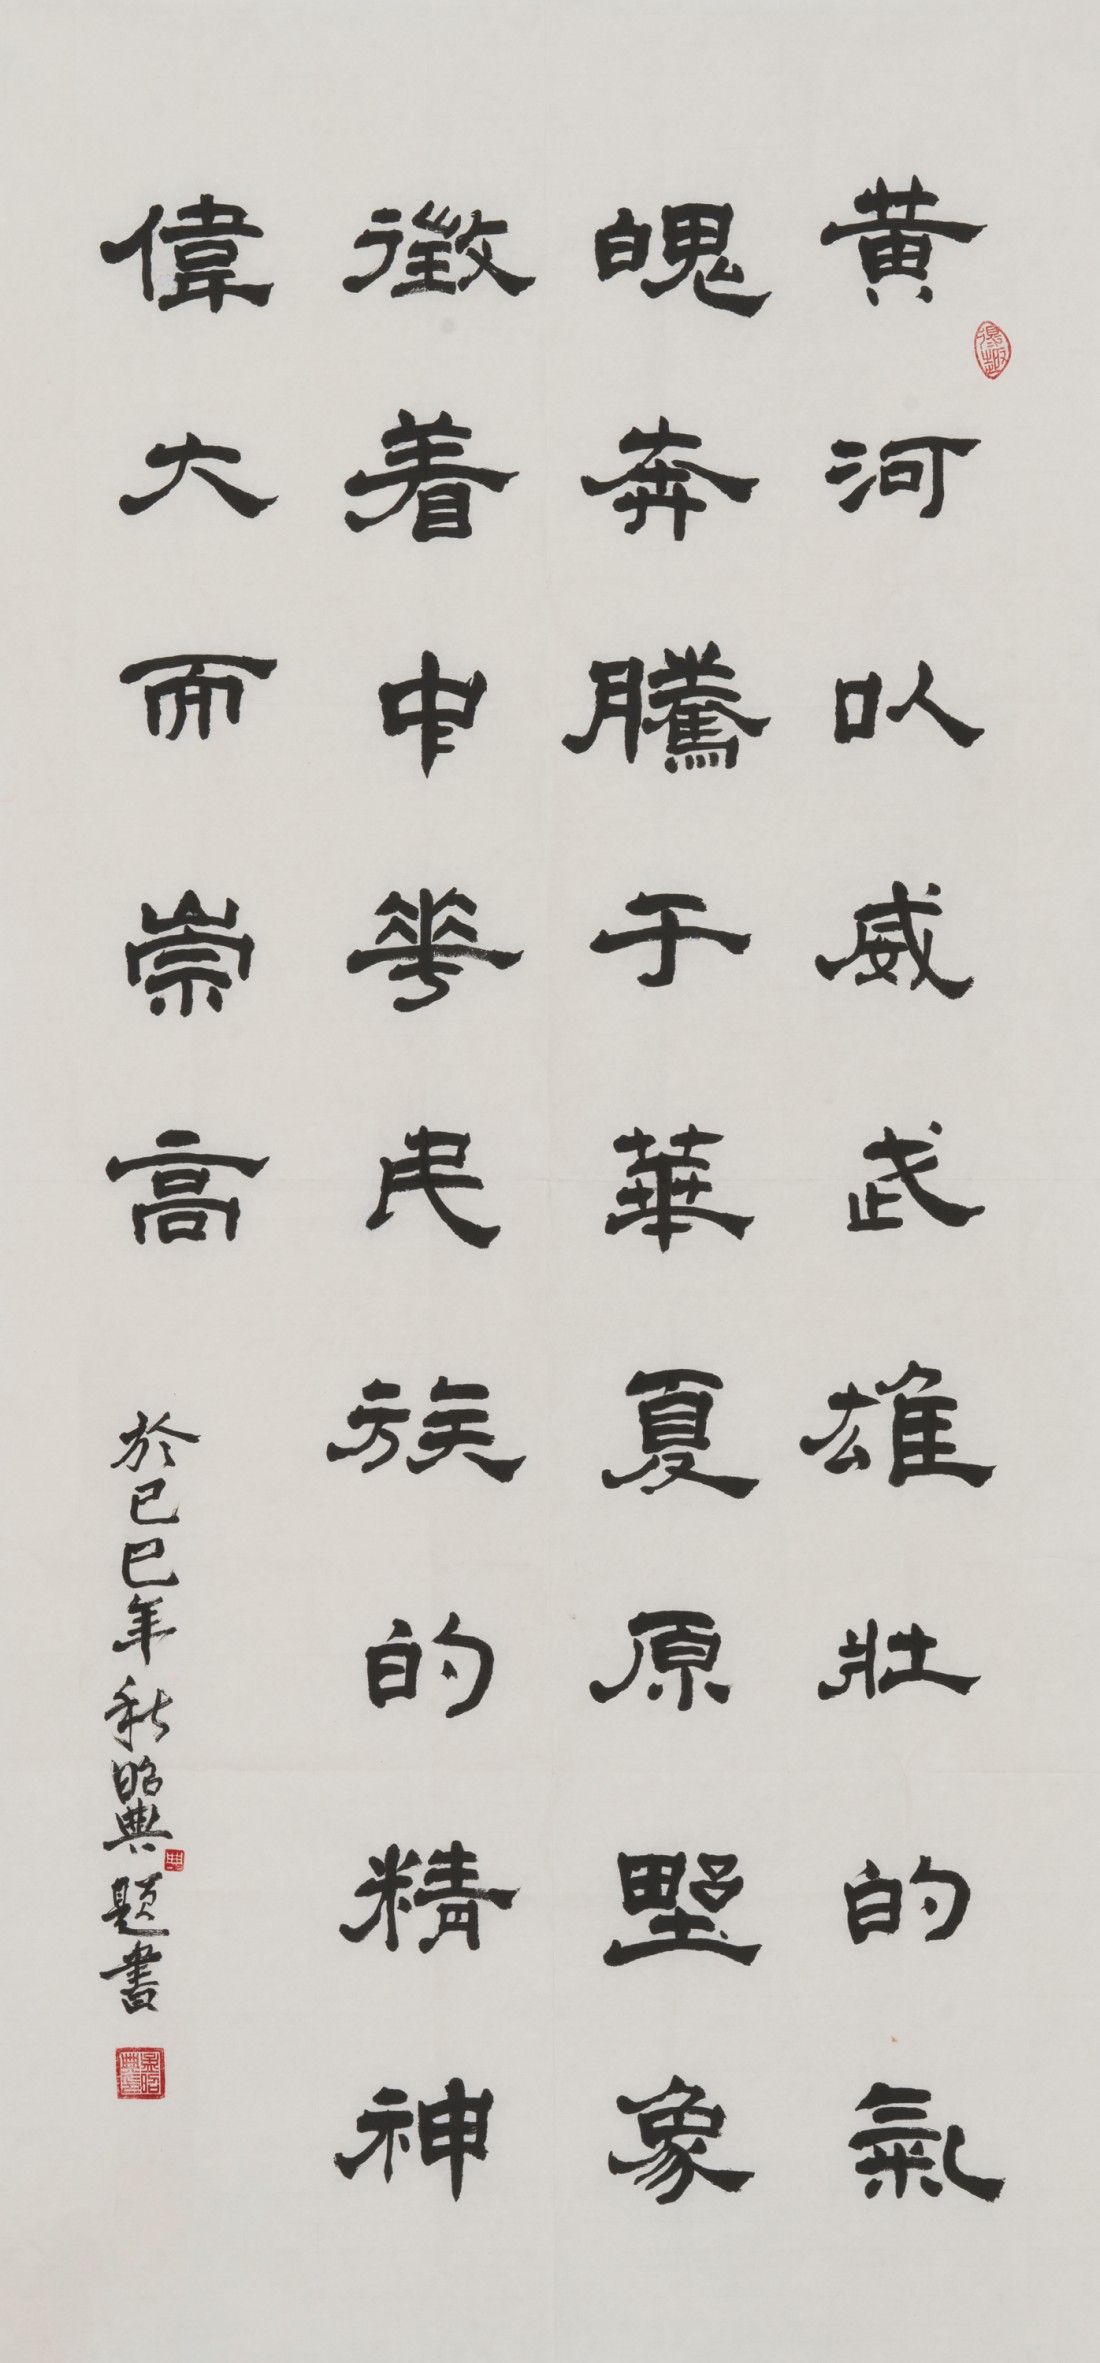 黄河以威武雄壯的氣
魄奔騰于華夏原野象
徵着中華民族的精神
偉大而崇高
於己巳年秋昭典題書